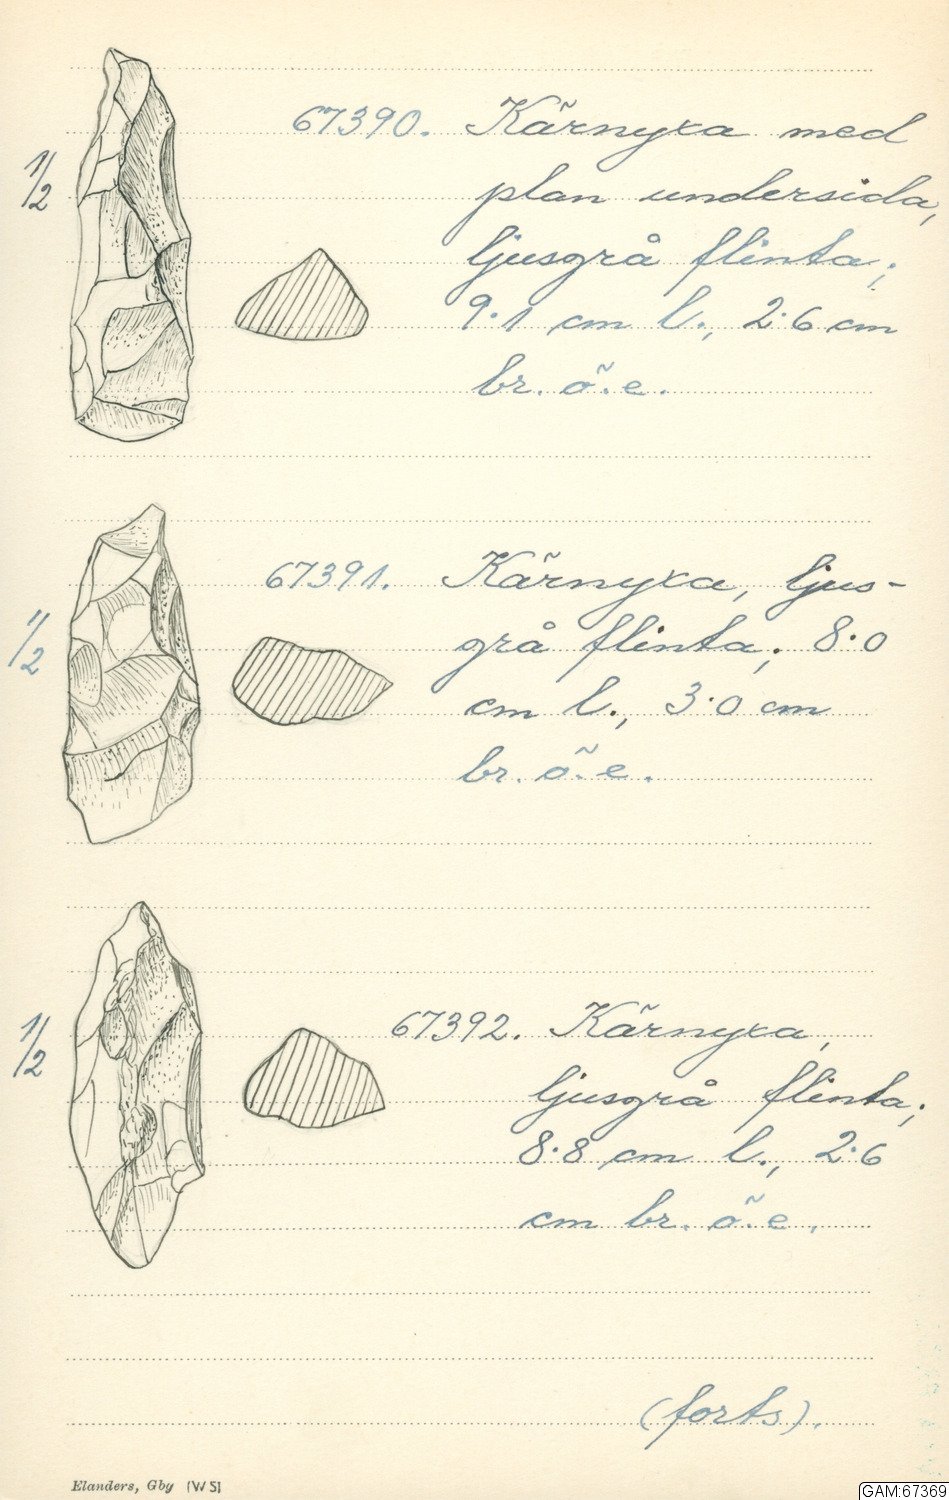 1/2
67390. Kärnyxa med
plan undersida,
ljusgrå flinta;
9·1 cm l., 2·6 cm
br. ö. e.
1/2
67391. Kärnyxa, ljus-
grå flinta; 8·0
cm l., 3·0 cm
br. ö. e.
1/2
67392. Kärnyxa,
ljusgrå flinta;
8·8 cm l., 2·6
cm br. ö. e.
(forts).
Elanders, Gby (WS)
GAM:67369